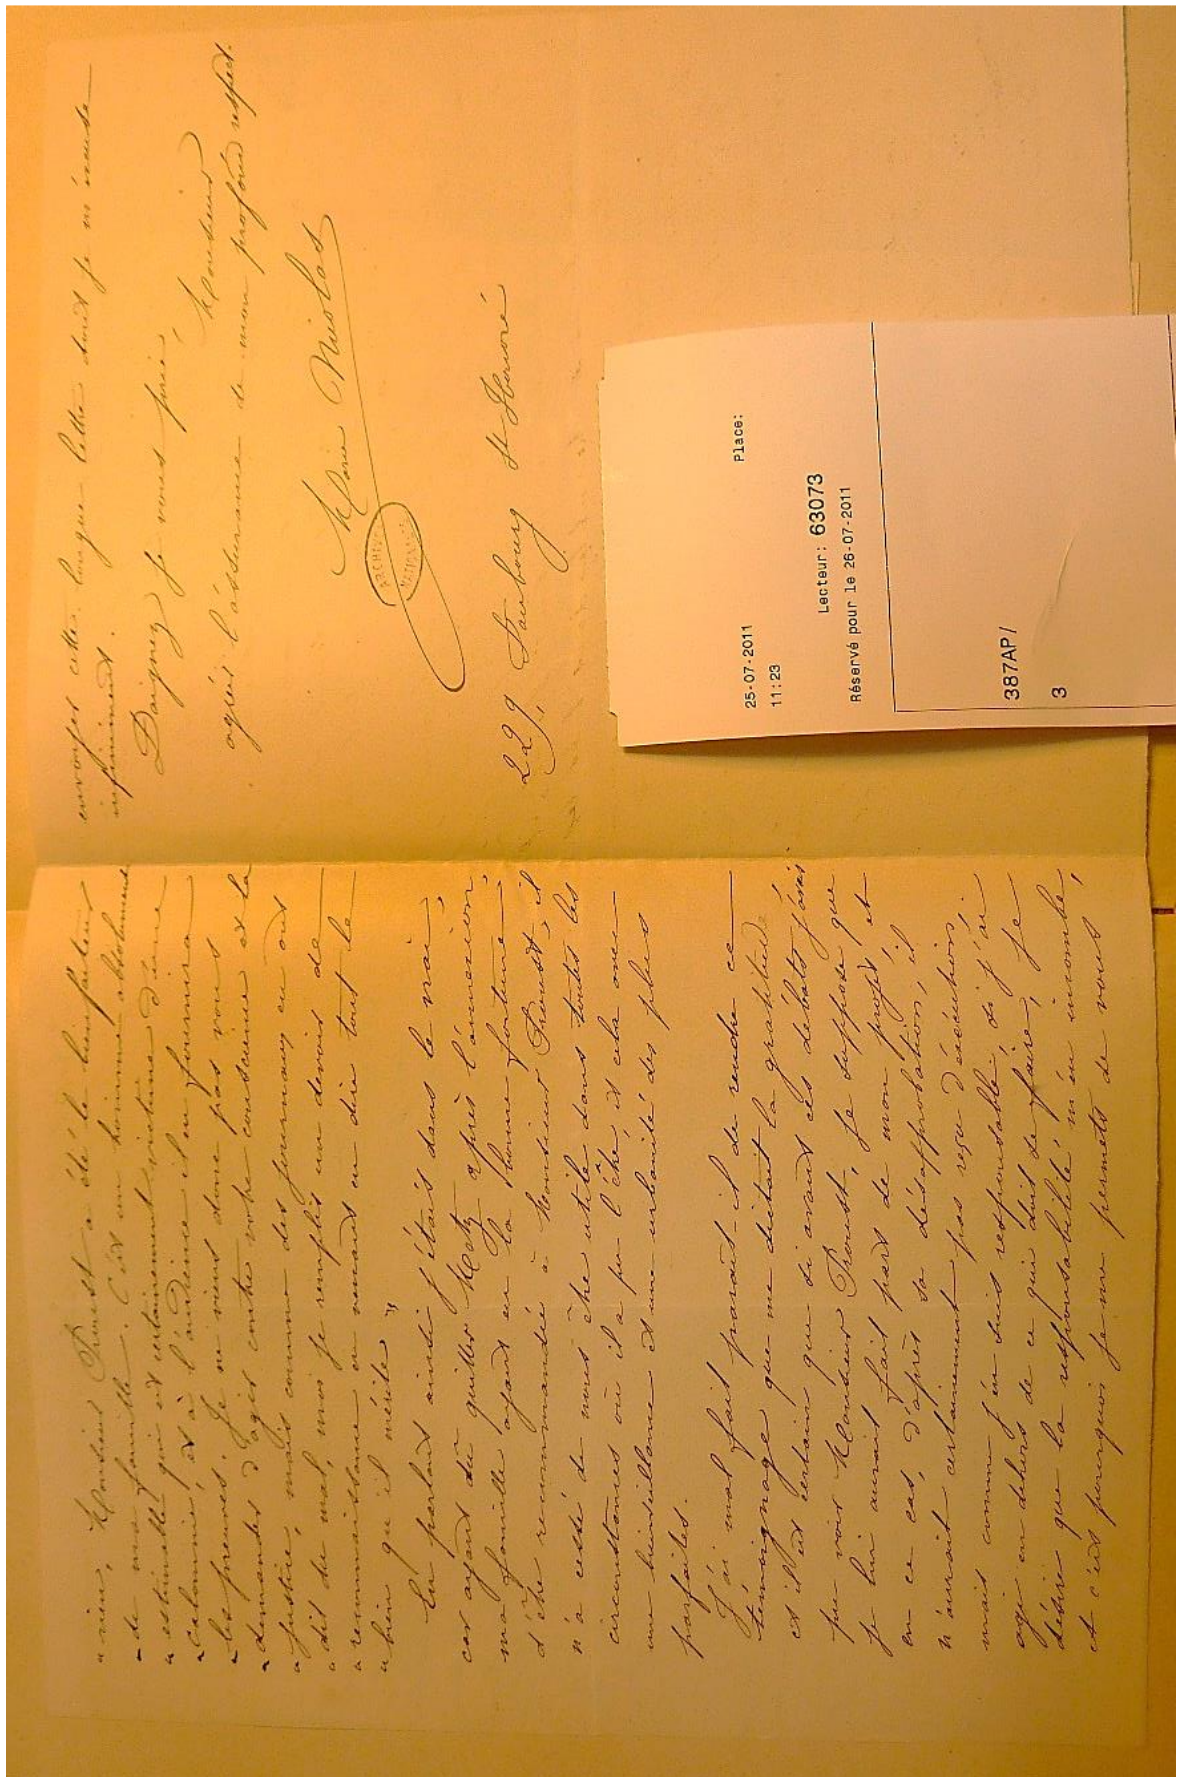 « rien, Monsieur Proust a été le bienfaiteur
« de ma famille. C'est un homme absolument
« estimable qui est certainement victime d'une
« calomnie, et à l'audience il en fournira
« les preuves. Je ne viens donc pas vous
« demander d'agir contre votre conscience et la
« justice, mais comme des journaux en ont
« dit du mal, moi je remplis un devoir de
« reconnaissance en venant en dire tout le
« bien qu'il mérite »
En parlant ainsi j'étais dans le vrai,
car ayant dû quitter Metz après l'annexion,
ma famille ayant eu la bonne fortune
d'être recommandée à Monsieur Proust, il
n'a cessé de nous être utile dans toutes les
circonstances où il a pu l'être et cela avec
une bienveillance et une urbanité des plus
parfaites.
J'ai mal fait paraît-il de rendre ce
témoignage que me dictait la gratitude
et il est certain que si avant ces débats j'avais
pu voir Monsieur Proust, je suppose que
je lui aurais fait part de mon projet et
en ce cas, d'après sa désapprobation, il
n'aurait certainement pas reçu d'exécution;
mais comme j'en suis responsable si j'ai
agi en dehors de ce qui doit se faire, je
désire que la responsabilité m'en incombe,
et c'est pourquoi je me permets de vous
envoyer cette longue lettre dont je m'excuse
infiniment.
Daignez je vous prie,
Monsieur
agréer l'assurance de mon profond respect.
Marie Nicolas
ARCHIVES
NATIONALES
229, Faubourg St Honoré
25-07-2011 Place:
11:23
Lecteur: 63073
Réservé pour le 26-07-2011
387AP/
3